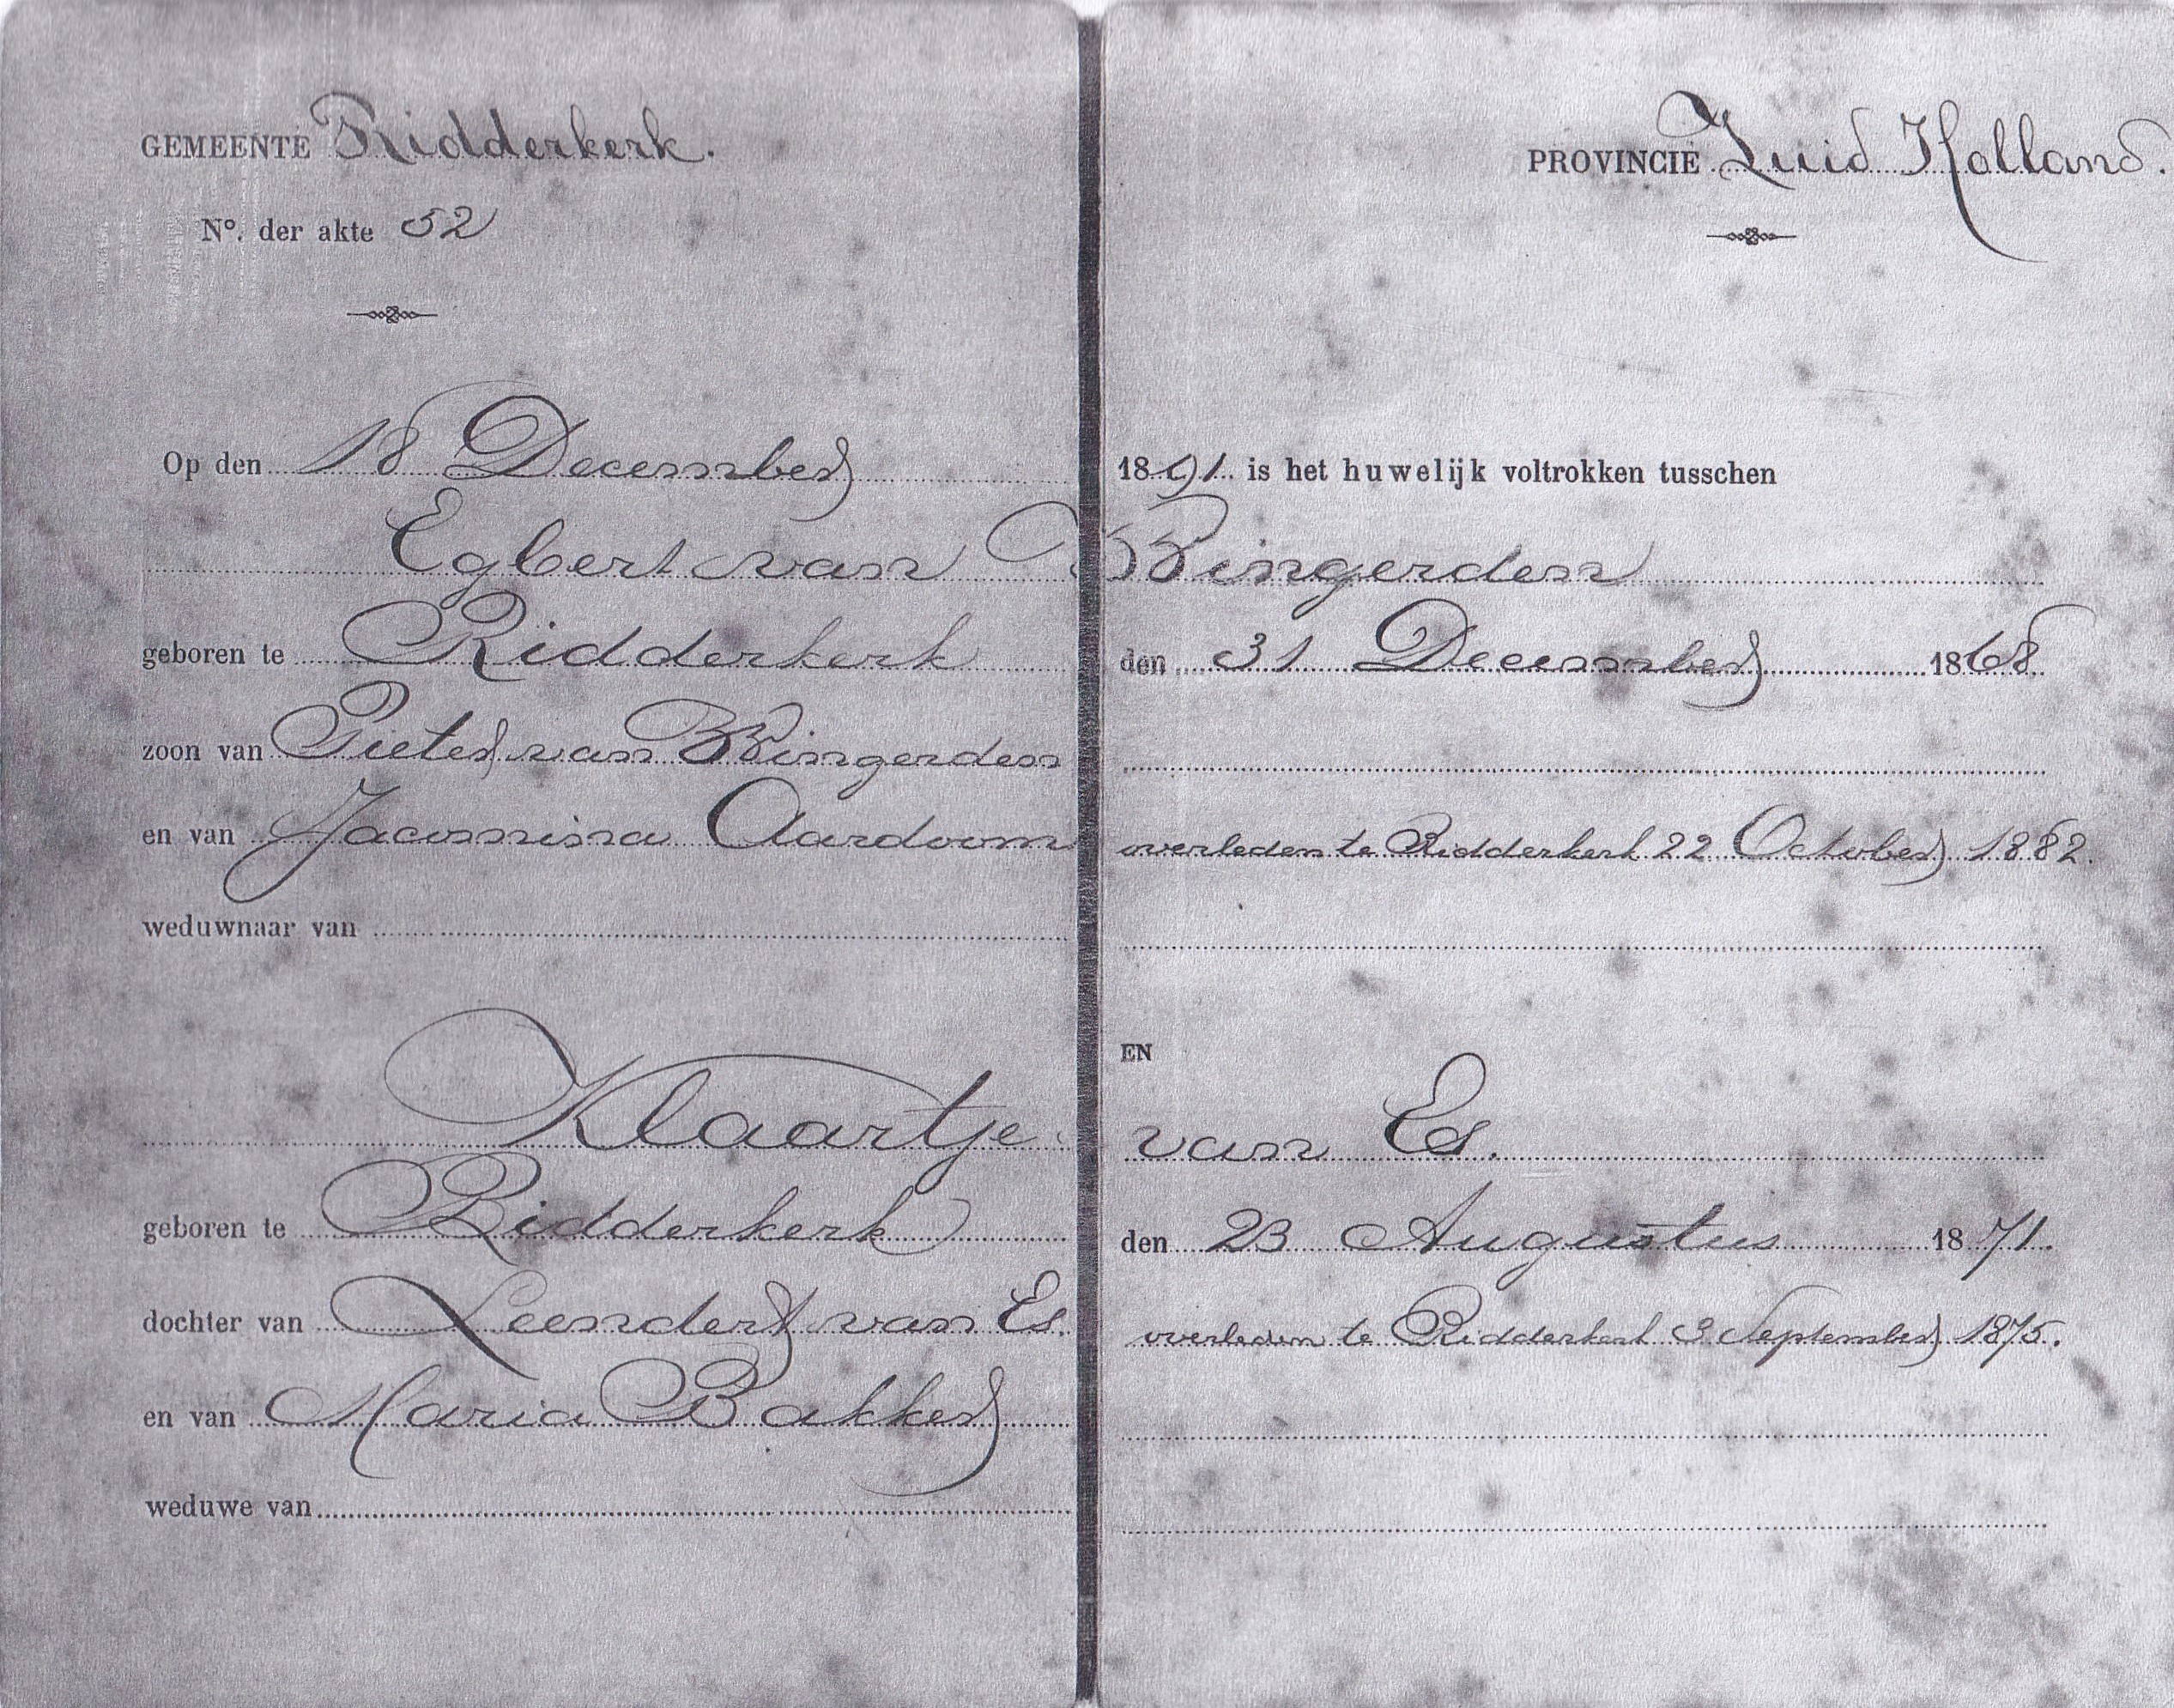 GEMEENTE Ridderkerk.
PROVINCIE Zuid Holland.
Nº. der akte 52
Op den 18 December 1891 is het huwelijk voltrokken tusschen
Egbert van Wingerden
geboren te Ridderkerk den 31 December 1868
zoon van Pieter van Wingerden
en van Jacomina Aardoom overleden te Ridderkerk 22 October 1882.
weduwnaar van
EN
Klaartje van Es.
geboren te Ridderkerk den 23 Augustus 1871.
dochter van Leendert van Es. overleden te Ridderkerk 3 September 1875.
en van Maria Bakker
weduwe van